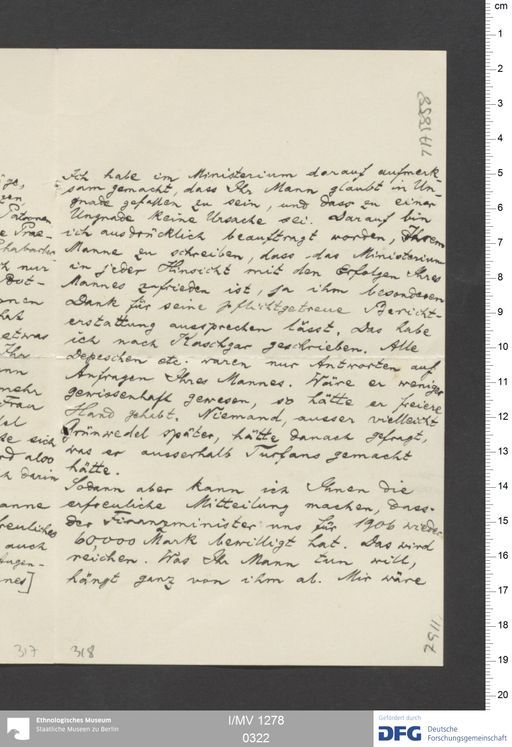 Ich habe im Ministerium darauf aufmerk-
sam gemacht, dass Ihr Mann glaubt in Un-
gnade gefallen zu sein, und dass zu einer
Ungnade keine Ursache sei. Darauf bin
ich ausdrücklich beauftragt worden, Ihrem
Manne zu schreiben, dass das Ministerium
in jeder Hinsicht mit den Erfolgen Ihres
Mannes zufrieden ist, ja ihm besonderen
Dank für seine pflichtgetreue Bericht-
erstattung aussprechen lässt. Das habe
ich nach Kaschgar geschrieben. Alle
Depeschen etc. waren nur Antworten auf
Anfragen Ihres Mannes. Wäre er weniger
gewissenhaft gewesen, so hätte er freiere
Hand gehabt. Niemand, ausser vielleicht
Grünwedel später, hätte danach gefragt,
was er ausserhalb Turfans gemacht
hätte.
Sodann aber kann ich Ihnen die
erfreuliche Mitteilung machen, dass
der Finanzminister uns für 1906 wieder
60,000 Mark bewilligt hat. Das wird
reichen. Was Ihr Mann tun will,
hängt ganz von ihm ab. Mir wäre
317
318
Patronen
nur
etwas
Ihr
mehr
Frau
sich
darin
auch
cm
1
2
3
4
5
6
7
8
9
10
11
12
13
14
15
16
17
18
19
20
Ethnologisches Museum
Staatliche Museen zu Berlin
I/MV 1278
0322
Gefördert durch
DFG Deutsche
Forschungsgemeinschaft